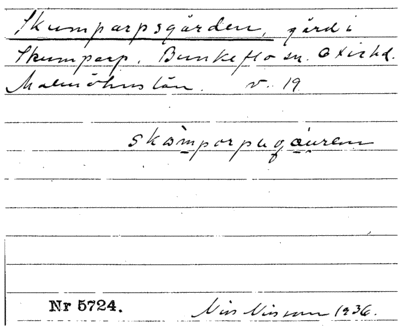 Skumparpsgården, gård i
Skumparp. Bunkeflo sn. Oxie hd.
Malmöhus län. v. 19
skåmporpsgåuren
Nr 5724.
Nils Nilsson 1936.